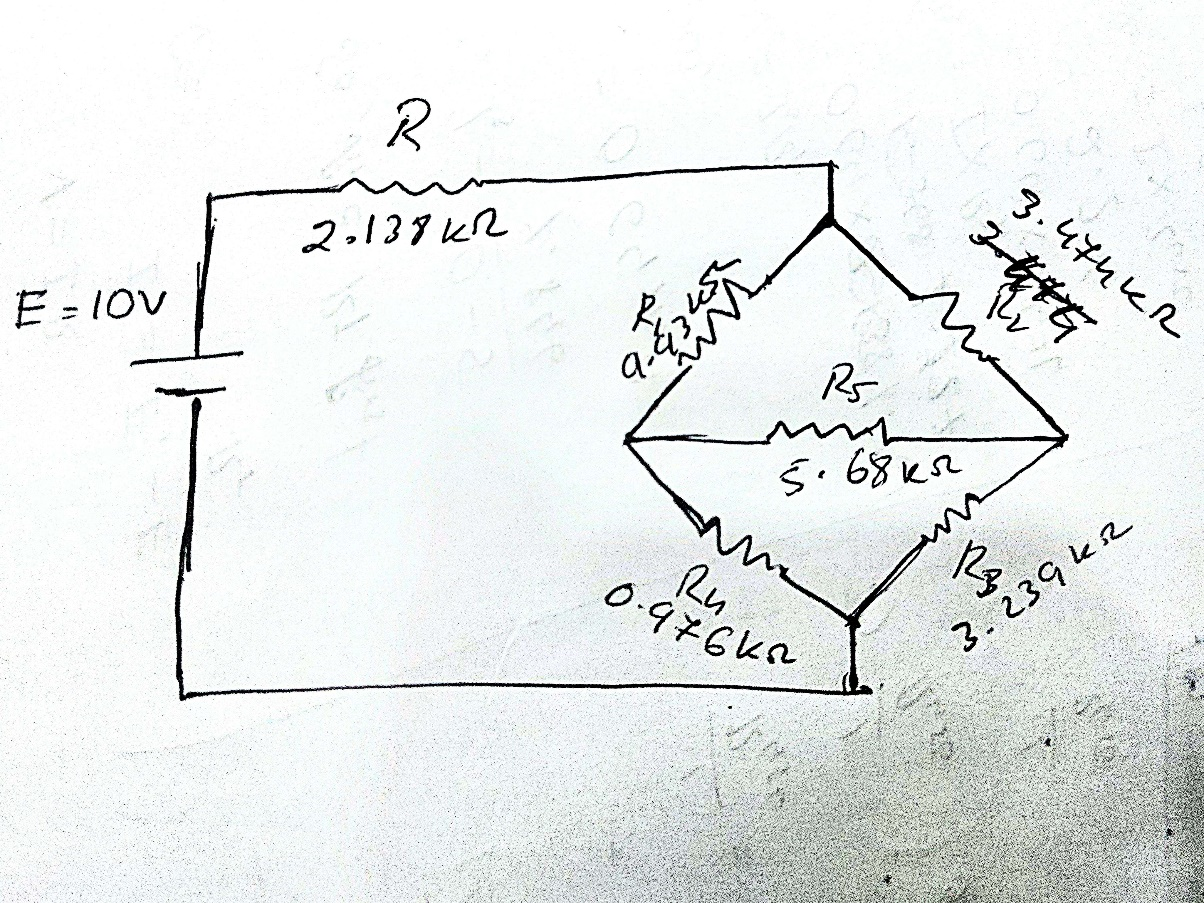 R
2.138kΩ
E=10V
3.474kΩ
R2
R5
5.68kΩ
R4
0.976kΩ
R3
3.239kΩ